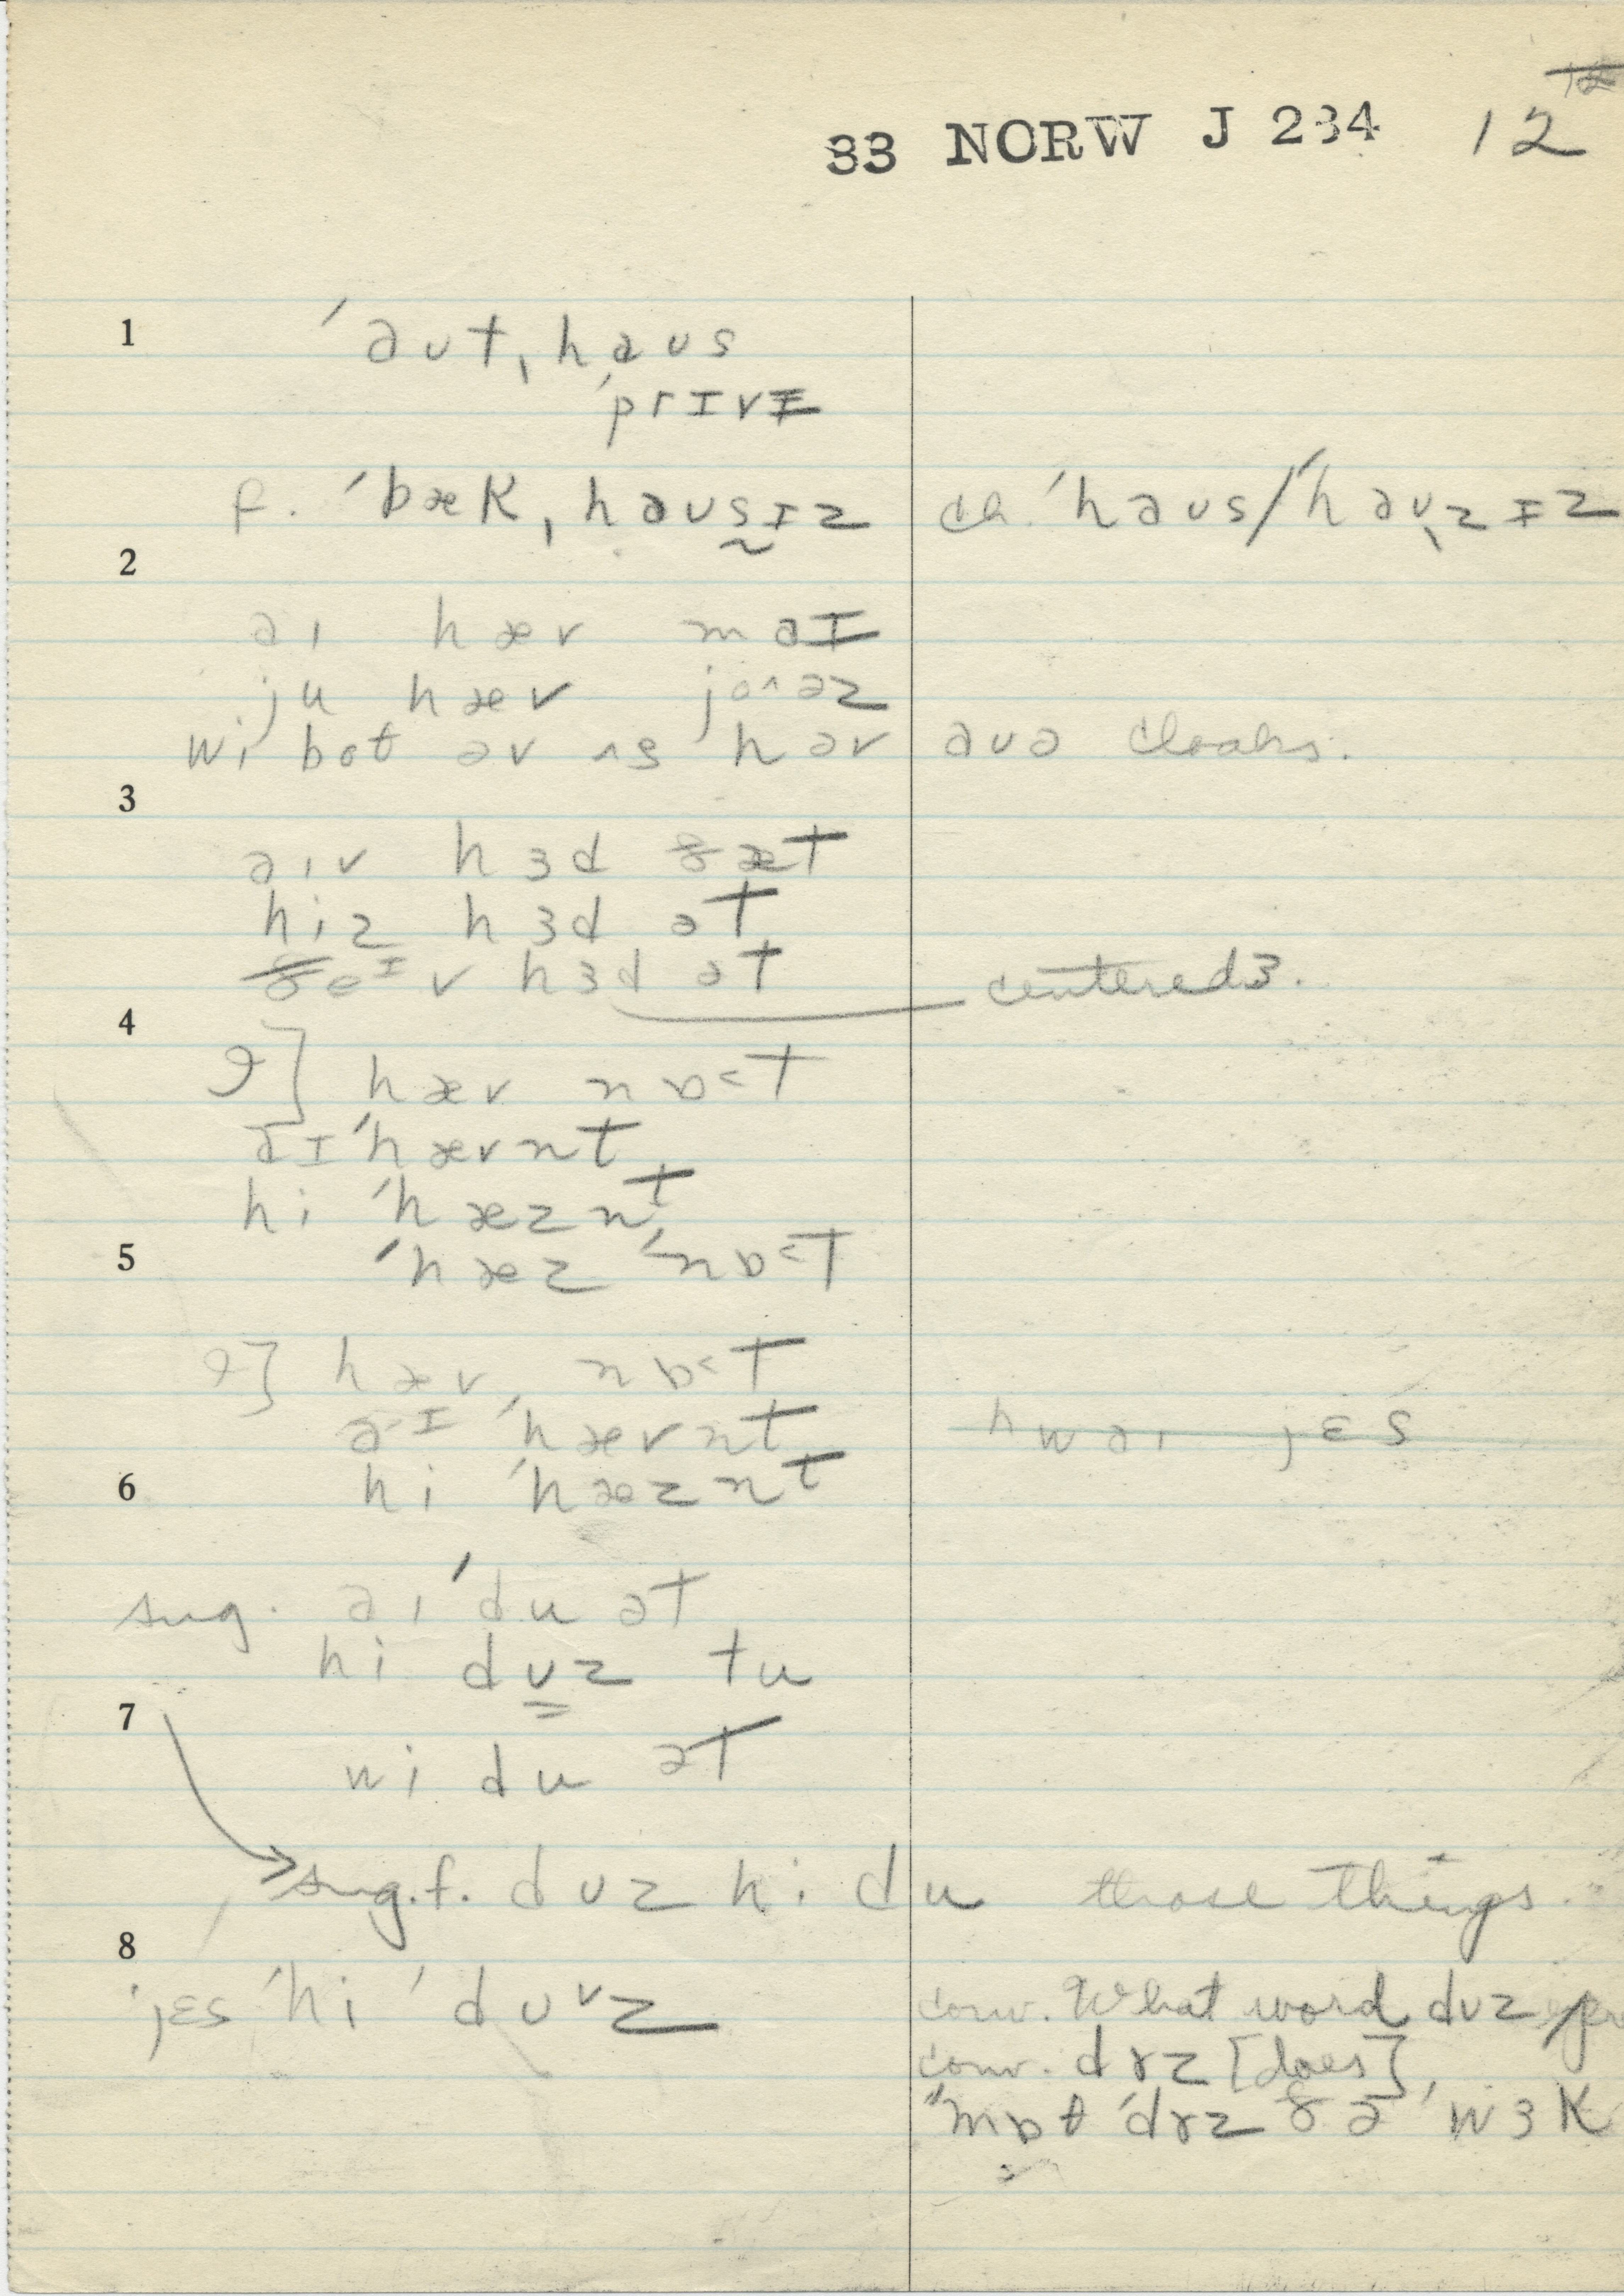 12
33 NORW J 234 12
1 ˈaʊt ˌhaʊs
ˈprɪvɪ
f. ˈbæk ˌhaʊsɪz ch. ˈhaʊs/ˈhaʊˌzɪz
2
aɪ hæv maɪ
ju hæv joˆəz
wi bot əv ʌs hav aʊə cloaks.
3
aɪv hɜd ðæt
hiz hɜd ət
ðeɪv hɜd ət centered ɜ.
4
ɡ] hæv nɒ˂t
aɪ ˈhævnt
hi ˈhæznt
5 ˈhæz ˈnɒ˂t
ɡ] hæv nɒ˂t
aɪ ˈhævnt hwaɪ jɛs
6 hi ˈhæznt
sug. aɪ ˈdu ət
hi dʊz tu
7
wi du ət
sug. f. dʊz hi du those things.
8
jɛs ˈhi ˈdʊᵛz conv. What word dʊz
conv. dɤz [does]
"mɒt ˈdɤz ðə ˈwɜk